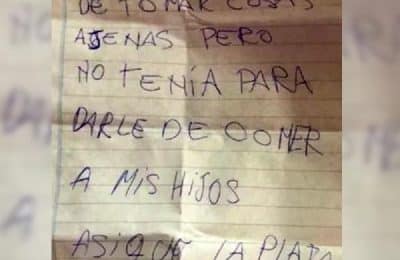 DE TOMAR COSAS
AJENAS PERO
NO TENÍA PARA
DARLE DE COMER
A MIS HIJOS
ASIQUE LA PLATA